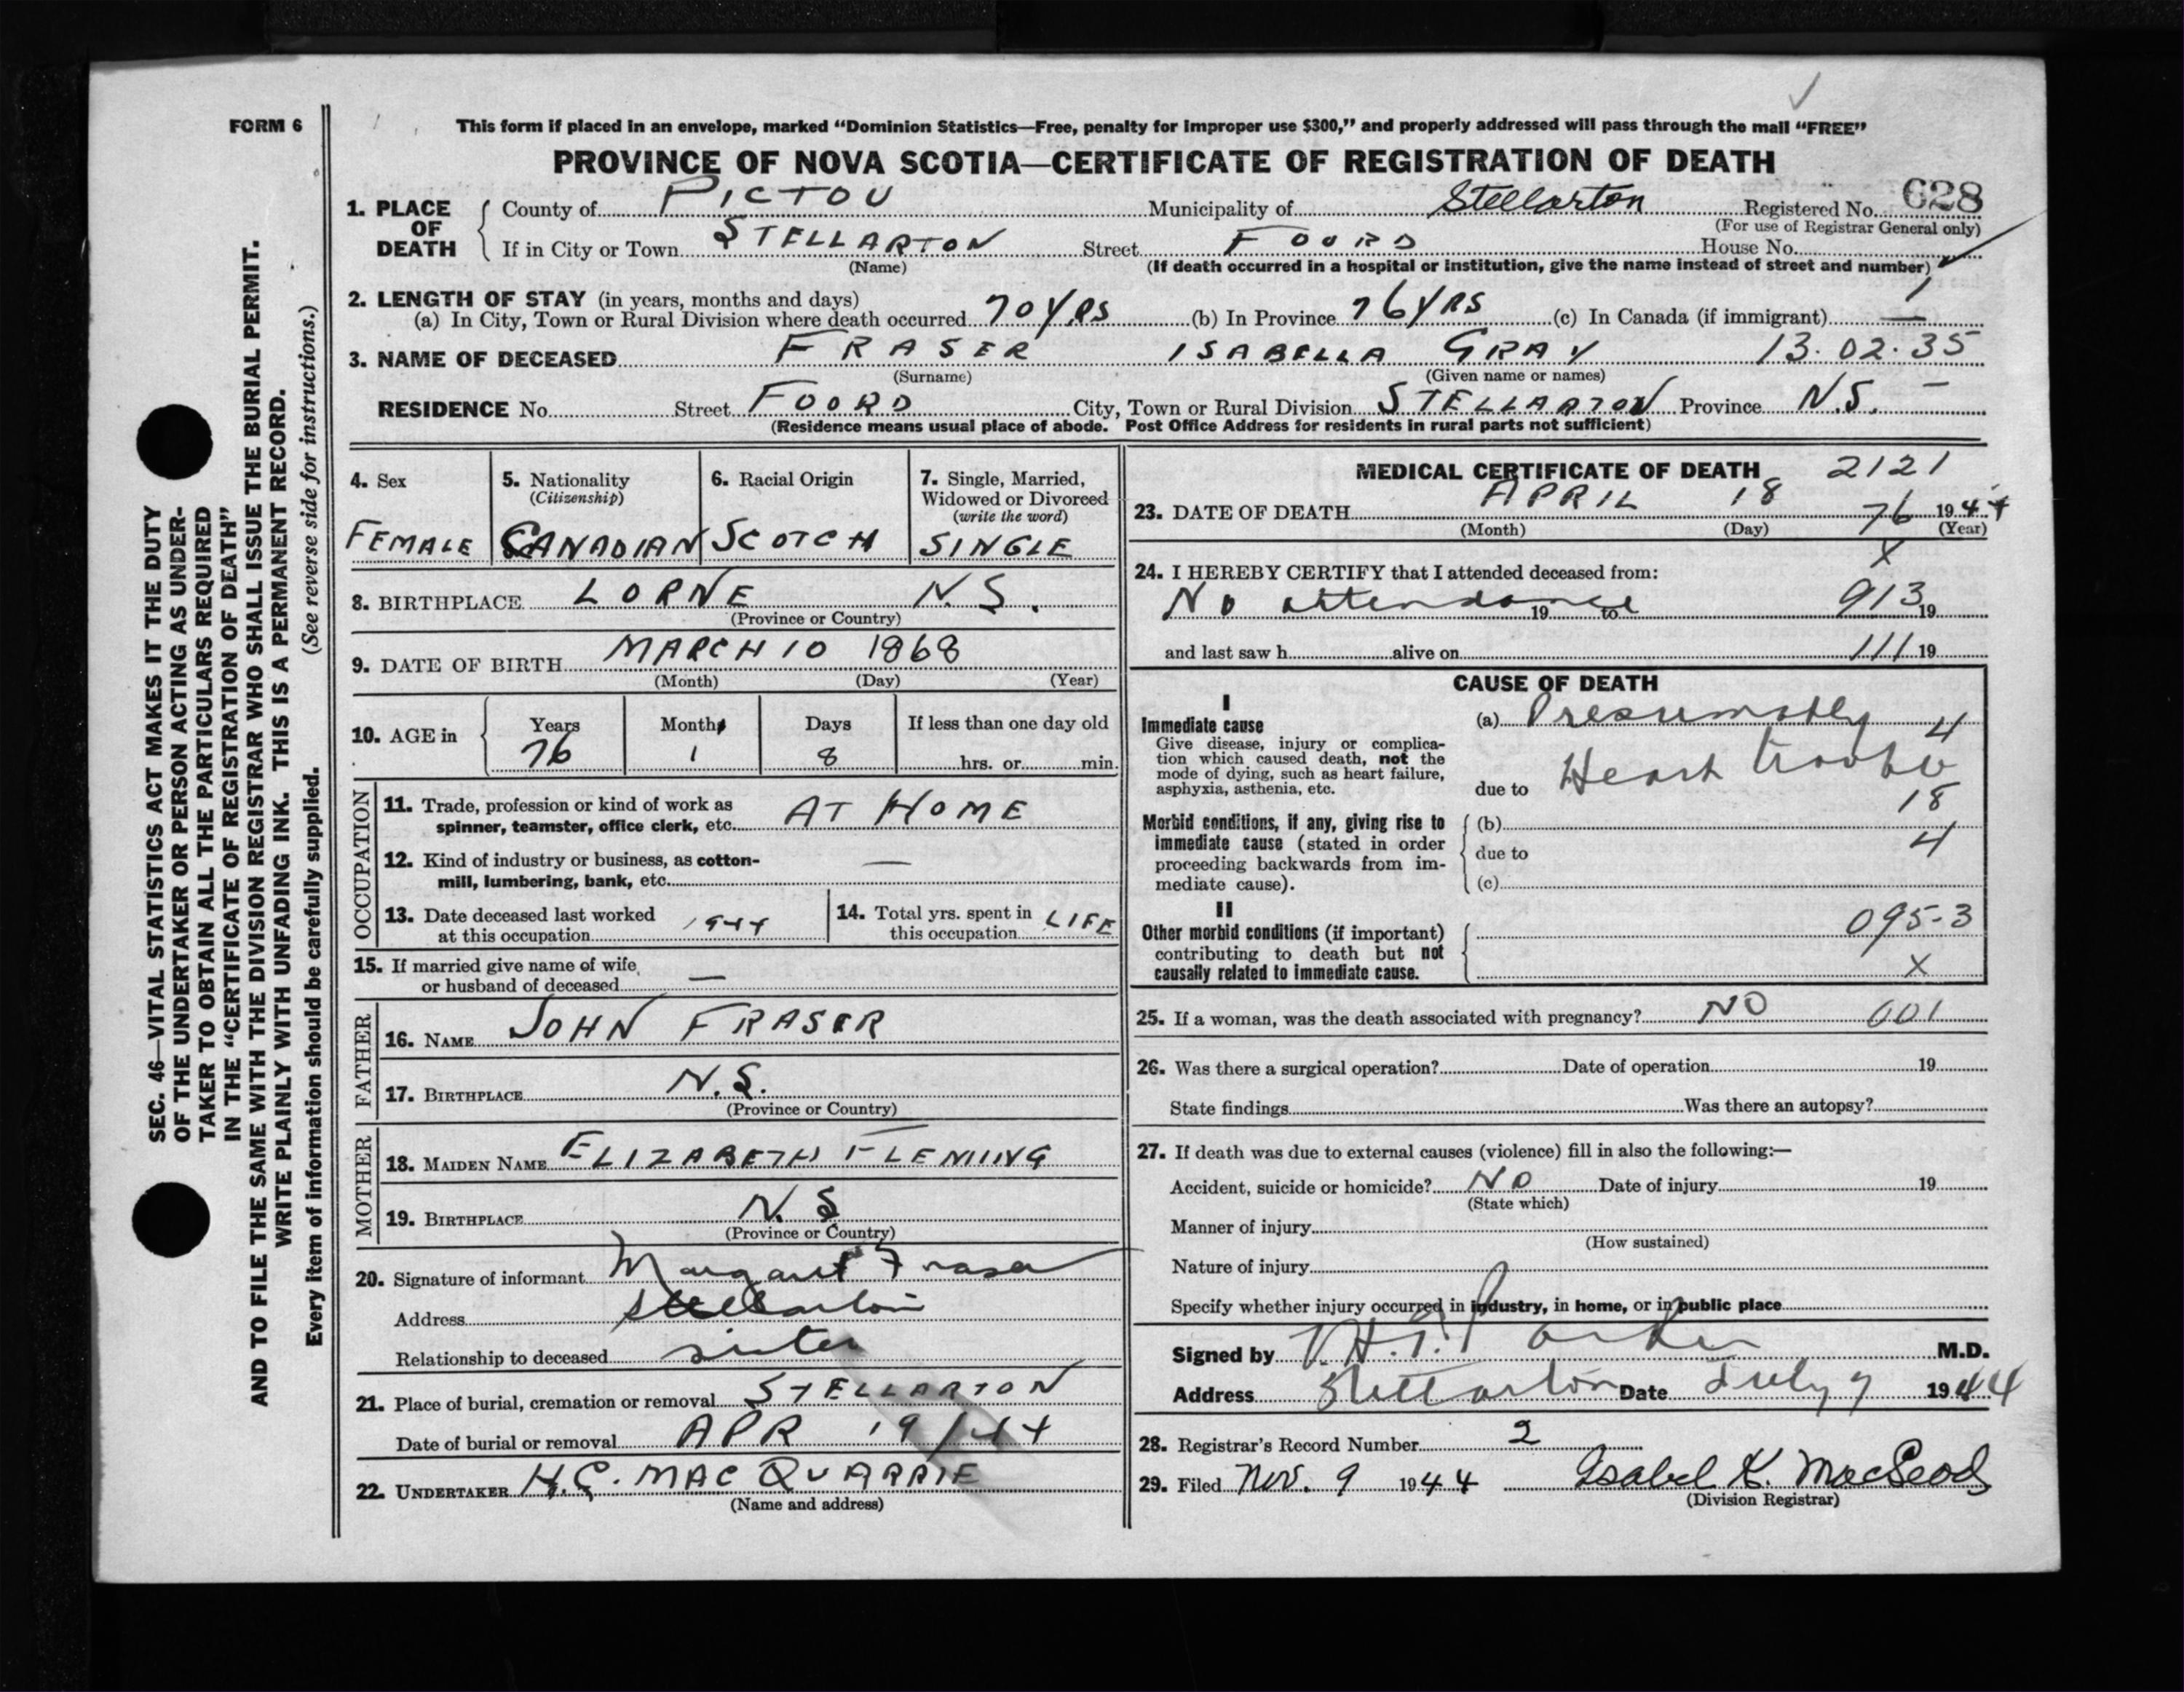 FORM 6
This form if placed in an envelope, marked “Dominion Statistics—Free, penalty for improper use $300,” and properly addressed will pass through the mail “FREE”
PROVINCE OF NOVA SCOTIA—CERTIFICATE OF REGISTRATION OF DEATH
1. PLACE OF DEATH
County of PICTOU Municipality of Stellarton Registered No. 628
(For use of Registrar General only)
If in City or Town STELLARTON Street FOORD House No.
(Name) (If death occurred in a hospital or institution, give the name instead of street and number)
2. LENGTH OF STAY (in years, months and days)
(a) In City, Town or Rural Division where death occurred 70 YRS (b) In Province 76 YRS (c) In Canada (if immigrant) —
3. NAME OF DECEASED FRASER ISABELLA GRAY 13.02.35
(Surname) (Given name or names)
RESIDENCE No. Street FOORD City, Town or Rural Division STELLARTON Province N.S. —
(Residence means usual place of abode. Post Office Address for residents in rural parts not sufficient)
4. Sex
FEMALE
5. Nationality
(Citizenship)
CANADIAN
6. Racial Origin
SCOTCH
7. Single, Married,
Widowed or Divorced
(write the word)
SINGLE
8. BIRTHPLACE LORNE N.S.
(Province or Country)
9. DATE OF BIRTH MARCH 10 1868
(Month) (Day) (Year)
10. AGE in
Years Months Days If less than one day old
76 1 8 hrs. or min.
OCCUPATION
11. Trade, profession or kind of work as
spinner, teamster, office clerk, etc. AT HOME
12. Kind of industry or business, as cotton-
mill, lumbering, bank, etc. —
13. Date deceased last worked
at this occupation 1944
14. Total yrs. spent in
this occupation LIFE
15. If married give name of wife
or husband of deceased —
FATHER
16. NAME JOHN FRASER
17. BIRTHPLACE N.S.
(Province or Country)
MOTHER
18. MAIDEN NAME ELIZABETH FLEMING
19. BIRTHPLACE N.S
(Province or Country)
20. Signature of informant Margaret Fraser
Address Stellarton
Relationship to deceased sister
21. Place of burial, cremation or removal STELLARTON
Date of burial or removal APR 19/44
22. UNDERTAKER H.C. MAC QUARRIE
(Name and address)
MEDICAL CERTIFICATE OF DEATH 2121
23. DATE OF DEATH APRIL 18 76 1944
(Month) (Day) (Year)
X
24. I HEREBY CERTIFY that I attended deceased from:
No attendance 19 to 913 19
and last saw h alive on 111 19
CAUSE OF DEATH
I
Immediate cause
Give disease, injury or complica-
tion which caused death, not the
mode of dying, such as heart failure,
asphyxia, asthenia, etc.
(a) Presumably 4
due to Heart trouble
18
Morbid conditions, if any, giving rise to
immediate cause (stated in order
proceeding backwards from im-
mediate cause).
(b)
due to 4
(c)
II
Other morbid conditions (if important)
contributing to death but not
causally related to immediate cause.
095-3
X
25. If a woman, was the death associated with pregnancy? NO 001
26. Was there a surgical operation? Date of operation 19
State findings Was there an autopsy?
27. If death was due to external causes (violence) fill in also the following:—
Accident, suicide or homicide? NO Date of injury 19
(State which)
Manner of injury
(How sustained)
Nature of injury
Specify whether injury occurred in industry, in home, or in public place
Signed by Parker M.D.
Address Stellarton Date July 7 1944
28. Registrar's Record Number 2
29. Filed Nov. 9 1944 Isabel K. MacLeod
(Division Registrar)
SEC. 46—VITAL STATISTICS ACT MAKES IT THE DUTY
OF THE UNDERTAKER OR PERSON ACTING AS UNDER-
TAKER TO OBTAIN ALL THE PARTICULARS REQUIRED
IN THE “CERTIFICATE OF REGISTRATION OF DEATH”
AND TO FILE THE SAME WITH THE DIVISION REGISTRAR WHO SHALL ISSUE THE BURIAL PERMIT.
WRITE PLAINLY WITH UNFADING INK. THIS IS A PERMANENT RECORD.
Every item of information should be carefully supplied. (See reverse side for instructions.)